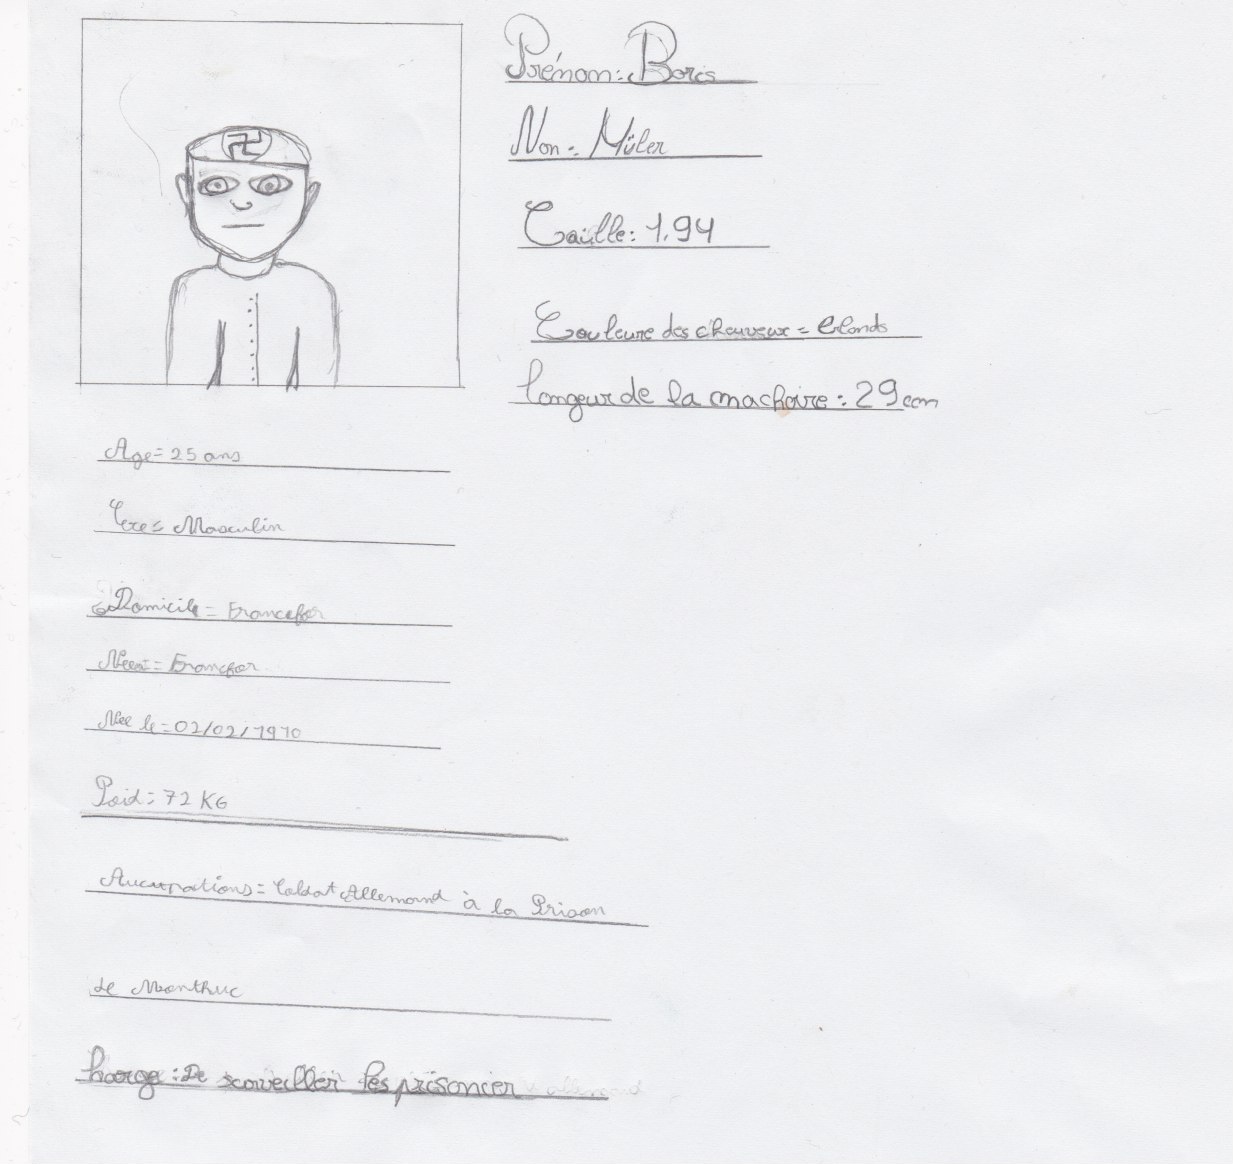 Prénom: Boris
Non: Müler
Taille: 1,94
Couleure des cheuveux = blonds
longeur de la machoire: 29 cm
Age= 25 ans
Sexe= Masculin
Domicile = Francefor
= Francfor
Née le= 02/02/1910
Poid: 72 KG
Aucupations= Soldat Allemand à la Prison
de Monthuc
harge: De scrveiller les prisonier